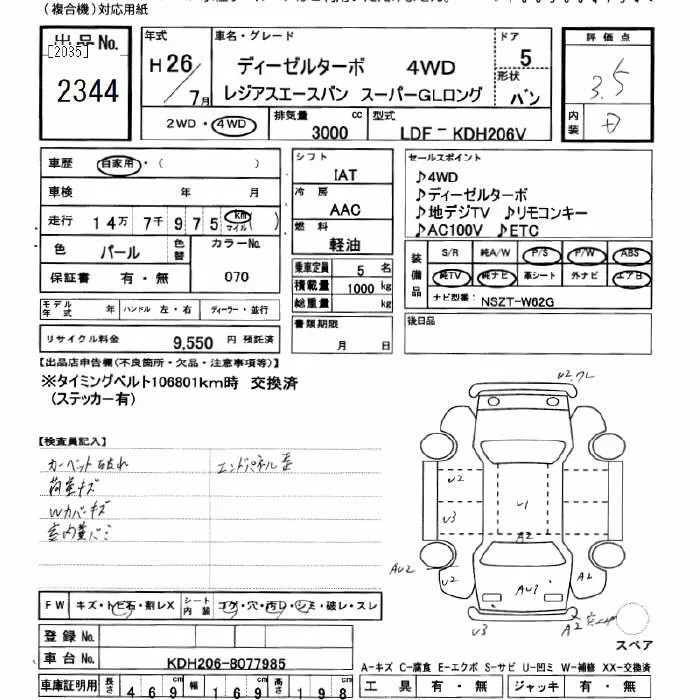 (複合機)対応用紙
出品No.
[2035]
2344
年式
H26/7月
車名・グレード
ディーゼルターボ 4WD
レジアスエースバン スーパーGLロング
ドア
5
形状
バン
評価点
3.5
内装
D
2WD・4WD
排気量
3000 cc
型式
LDF-KDH206V
車歴 自家用・( )
車検 年 月
走行 14万 7千 9 7 5 km マイル ( )
色 パール
色替
カラーNo.
070
保証書 有・無
シフト
IAT
冷房
AAC
燃料
軽油
乗車定員 5 名
積載量 1000 kg
総重量 kg
セールスポイント
♪4WD
♪ディーゼルターボ
♪地デジTV ♪リモコンキー
♪AC100V ♪ETC
装備品
S/R 純A/W P/S P/W ABS
純TV 純ナビ 革シート 外ナビ エアB
ナビ型番: NSZT-W62G
モデル年式 年 ハンドル 左・右 ディーラー・並行
リサイクル料金 9,550 円 預託済
書類期限
月 日
後日品
【出品店申告欄(不良箇所・欠品・注意事項等)】
※タイミングベルト106801km時 交換済
(ステッカー有)
【検査員記入】
カーペット破れ エンドパネル歪
荷室キズ
Wカバーキズ
室内蓋バミ
U2.ワレ
U2
U3
U1
A2
AU2
U2
AU1
U3
A2
スペア
FW キズ・トビ石・割レX
シート内装 コゲ・穴・汚レ・シミ・破レ・スレ
登録No.
車台No. KDH206-8077985
車庫証明用 長さ 469 幅 169 高さ 198
A-キズ C-腐食 E-エクボ S-サビ U-凹ミ W-補修 XX-交換済
工具 有・無 ジャッキ 有・無